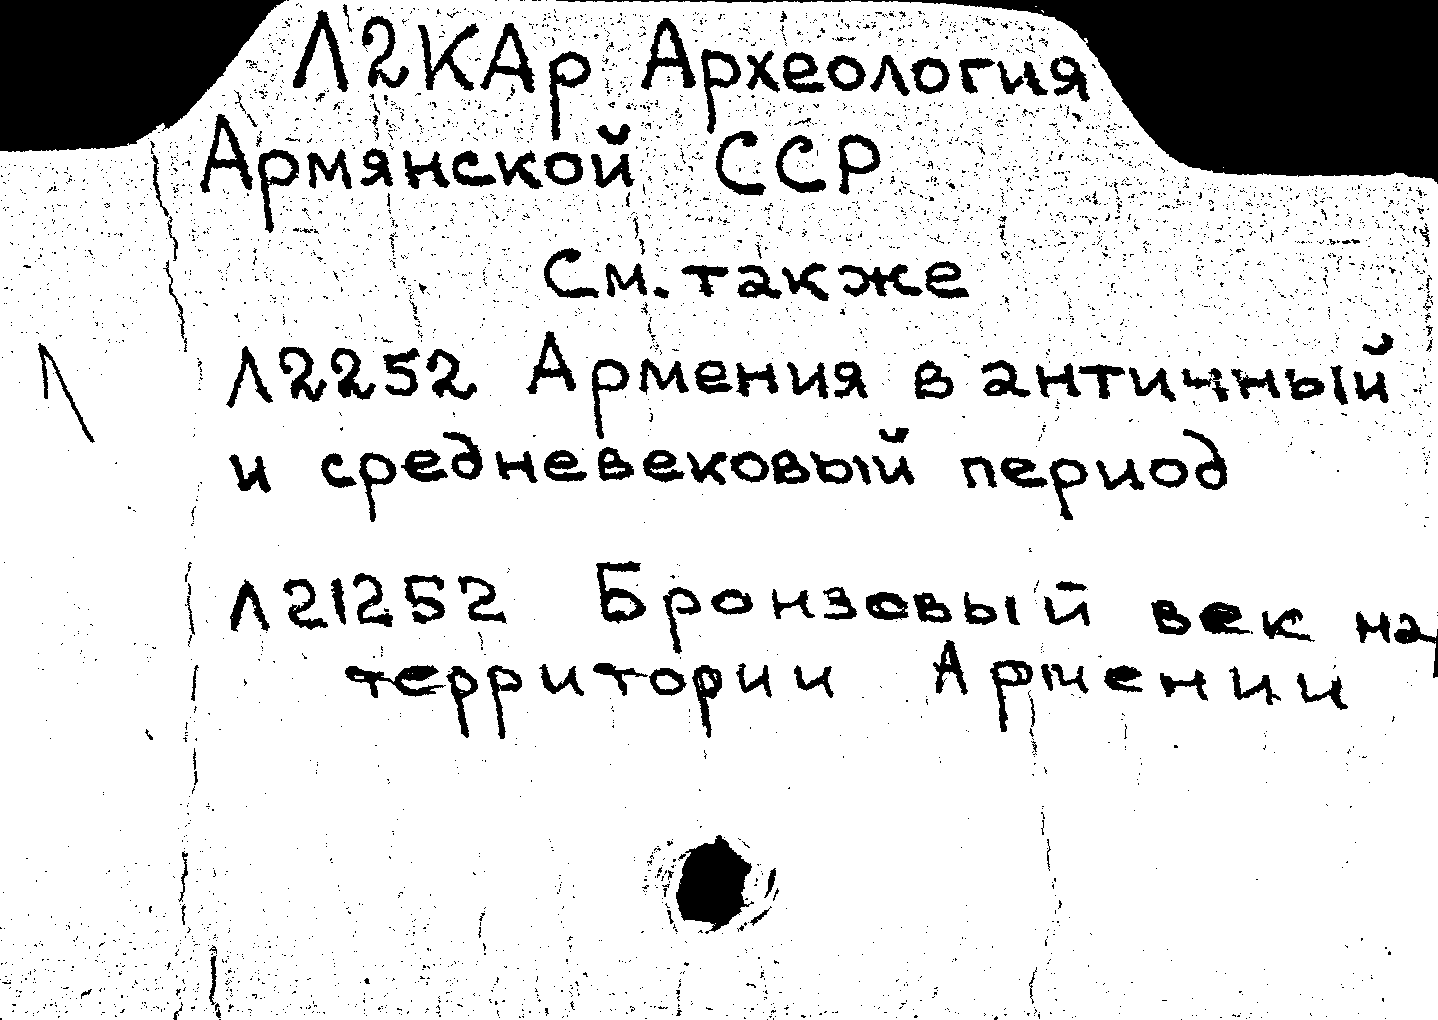 Л2КАр Археология
Армянской ССР
См. также
Л2252 Армения в античный
и средневековый период
Л21252 Бронзовый век на
территории Армении